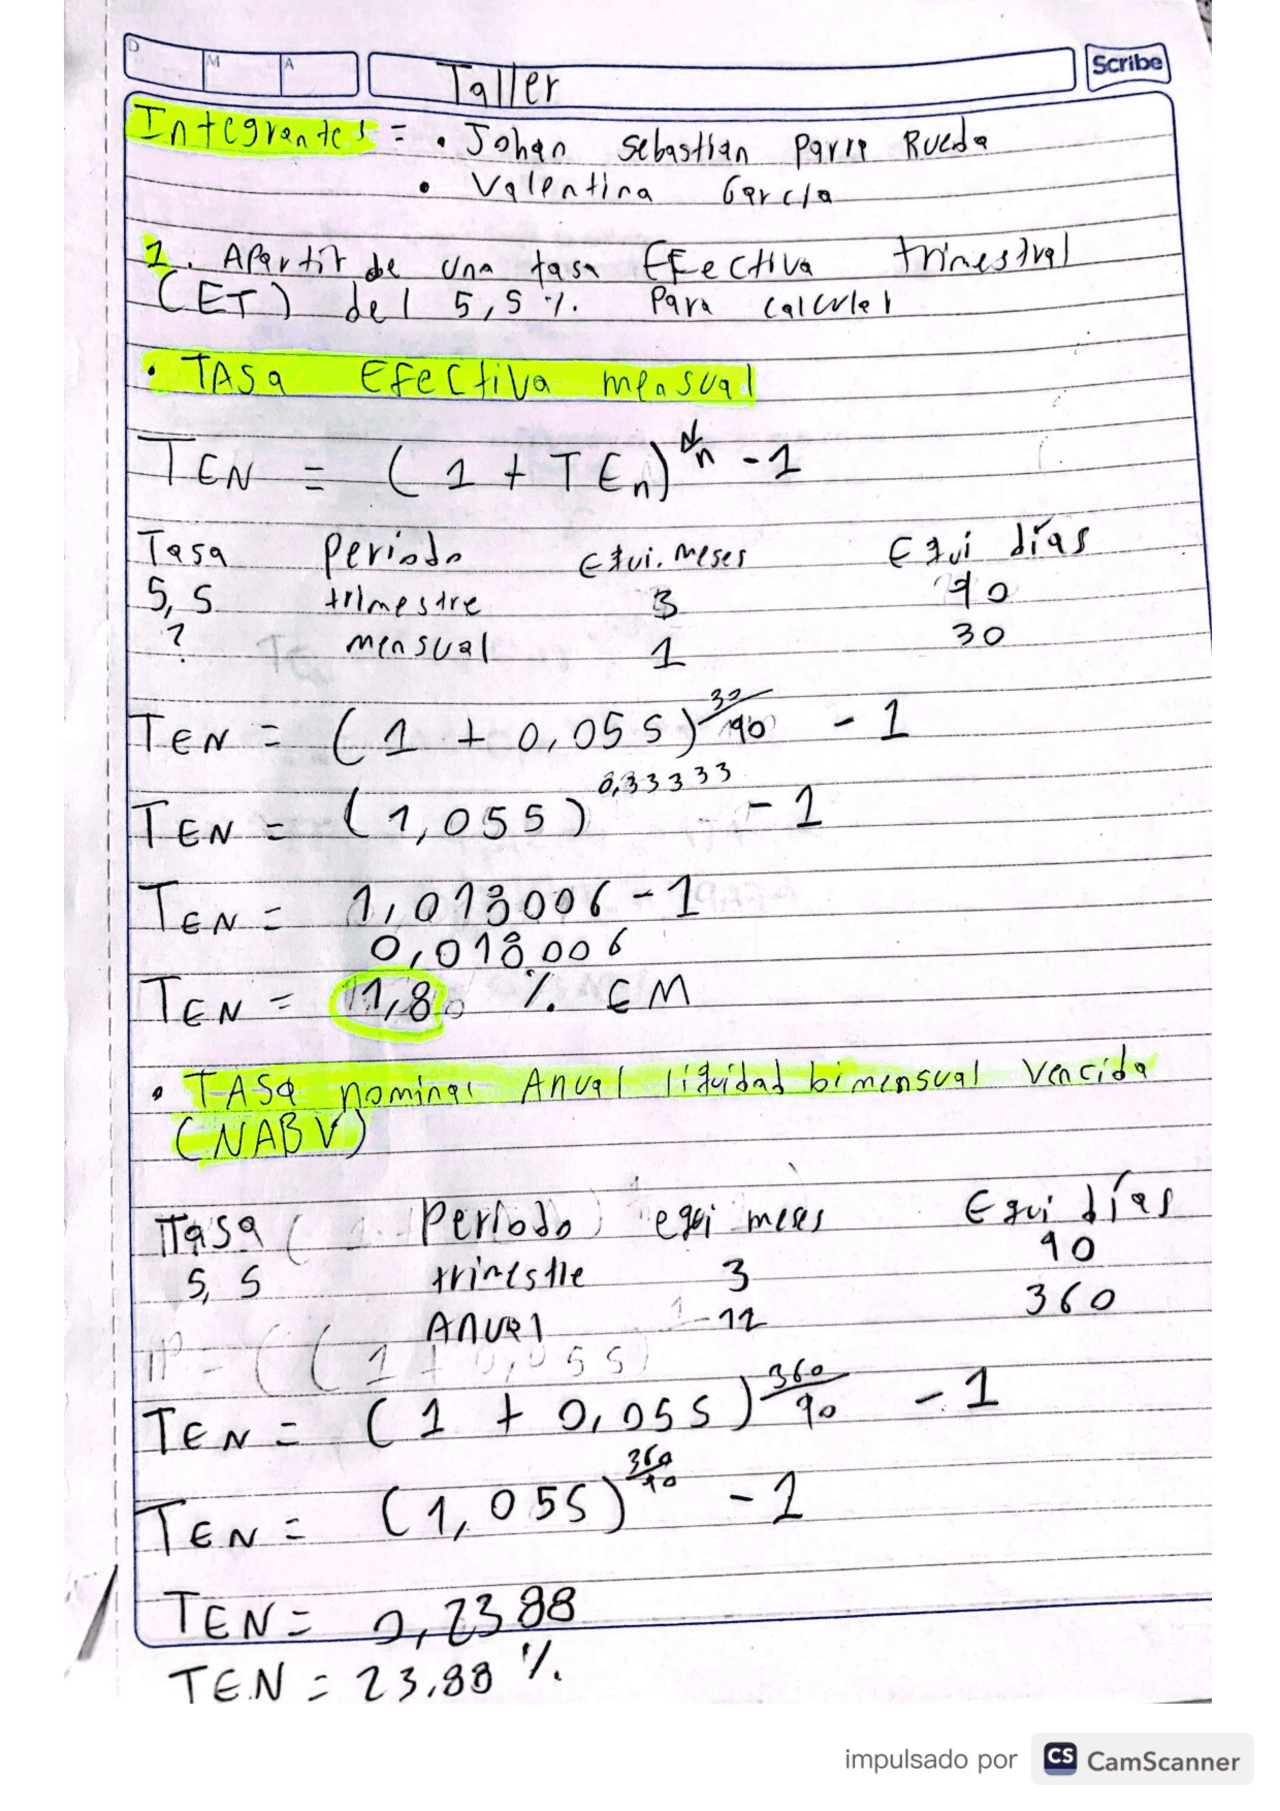 D M A
Taller
Scribe
Integrantes = • Johan Sebastian Parra Rueda
• Valentina Garcia
1. Apartir de una tasa Efectiva trimestral
(ET) del 5,5 %. Para calcular
• TASa Efectiva mensual
TEN = (1 + TEn)^N/n - 1
Tasa Periodo Equi. meses Equi días
5,5 trimestre 3 90
? mensual 1 30
TEN = (1 + 0,055)^30/90 - 1
TEN = (1,055)^0,33333 - 1
TEN = 1,018006 - 1
0,018006
TEN = 1,8 % EM
• TASa nominal Anual liquidad bimensual Vencida
(NABV)
Tasa Periodo equi meses Equi días
5,5 trimestre 3 90
Anual 12 360
TEN = (1 + 0,055)^360/90 - 1
TEN = (1,055)^360/90 - 1
TEN = 0,2388
TEN = 23,88 %
impulsado por CS CamScanner